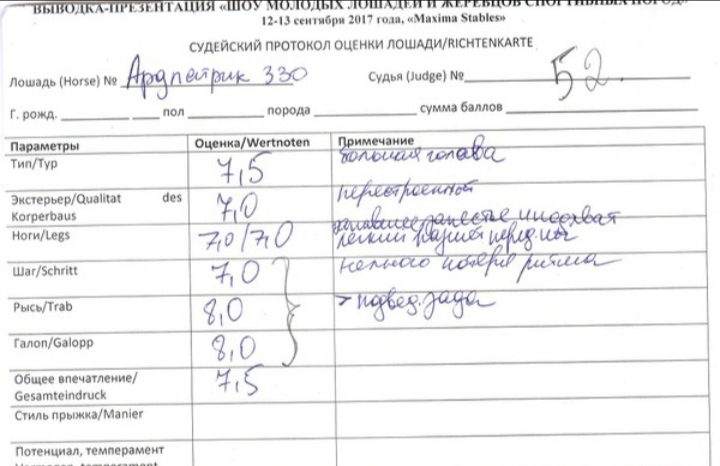 ВЫВОДКА-ПРЕЗЕНТАЦИЯ «ШОУ МОЛОДЫХ ЛОШАДЕЙ И ЖЕРЕБЦОВ СПОРТИВНЫХ ПОРОД»
12-13 сентября 2017 года, «Maxima Stables»
СУДЕЙСКИЙ ПРОТОКОЛ ОЦЕНКИ ЛОШАДИ/RICHTENKARTE
Лошадь (Horse) № Ардпатрик 330 Судья (Judge) №
52.
Г. рожд. пол порода сумма баллов
Параметры Оценка/Wertnoten Примечание
Тип/Typ 7,5 большая голова
Экстерьер/Qualitat des Korperbaus 7,0 перестроенной
запавшее запястье
Ноги/Legs 7,0/7,0 легкий размет перед. ног
Шаг/Schritt 7,0 немного потеря ритма
Рысь/Trab 8,0 > подвед. зада
Галоп/Galopp 8,0
Общее впечатление/ Gesamteindruck 7,5
Стиль прыжка/Manier
Потенциал, темперамент